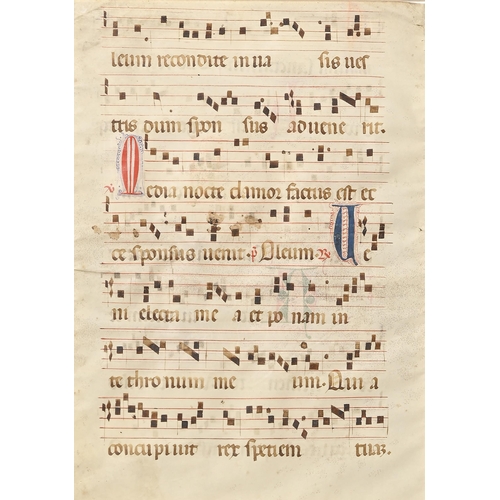 leum recondite in ua sis ues
tris dum spon sus aduene rit.
℣ Media nocte clamor factus est et
ce sponsus uenit. p̃ Oleum. ℟ Ue
ni electa me a et po nam in
te thro num me um. Quia
concupiuit rex speciem tuaz.